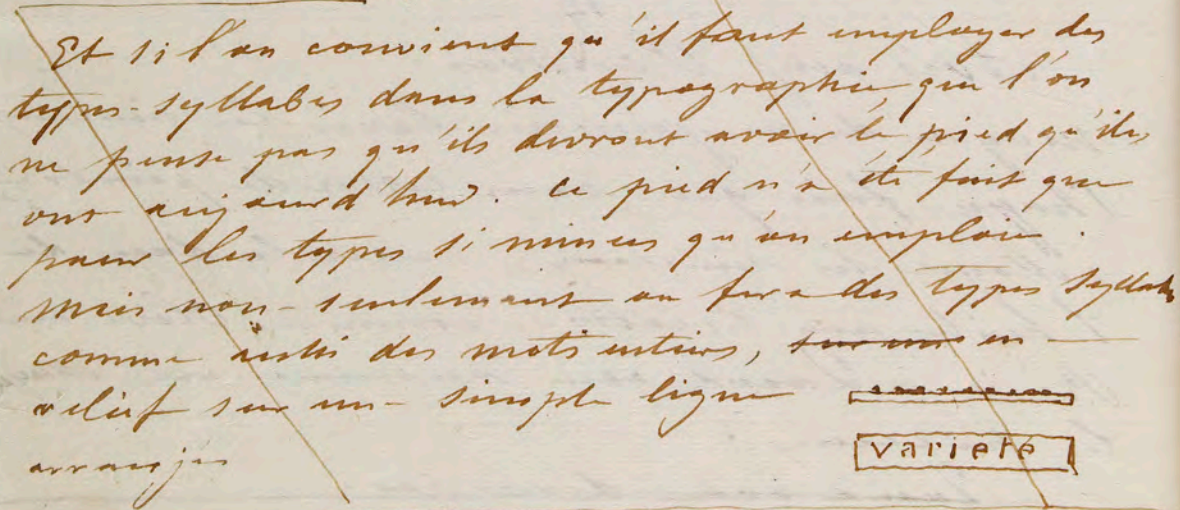 Et si l'on convient qu'il faut employer des
types-syllabes dans la typographie, que l'on
ne pense pas qu'ils devront avoir le pied qu'ils
ont aujourd'hui. Ce pied n'a été fait que
pour les types si minces qu'on emploie.
Mais non-seulement on fera des types syllabes
comme aussi des mots entiers, sur une en
relief sur un- simple ligne
variété